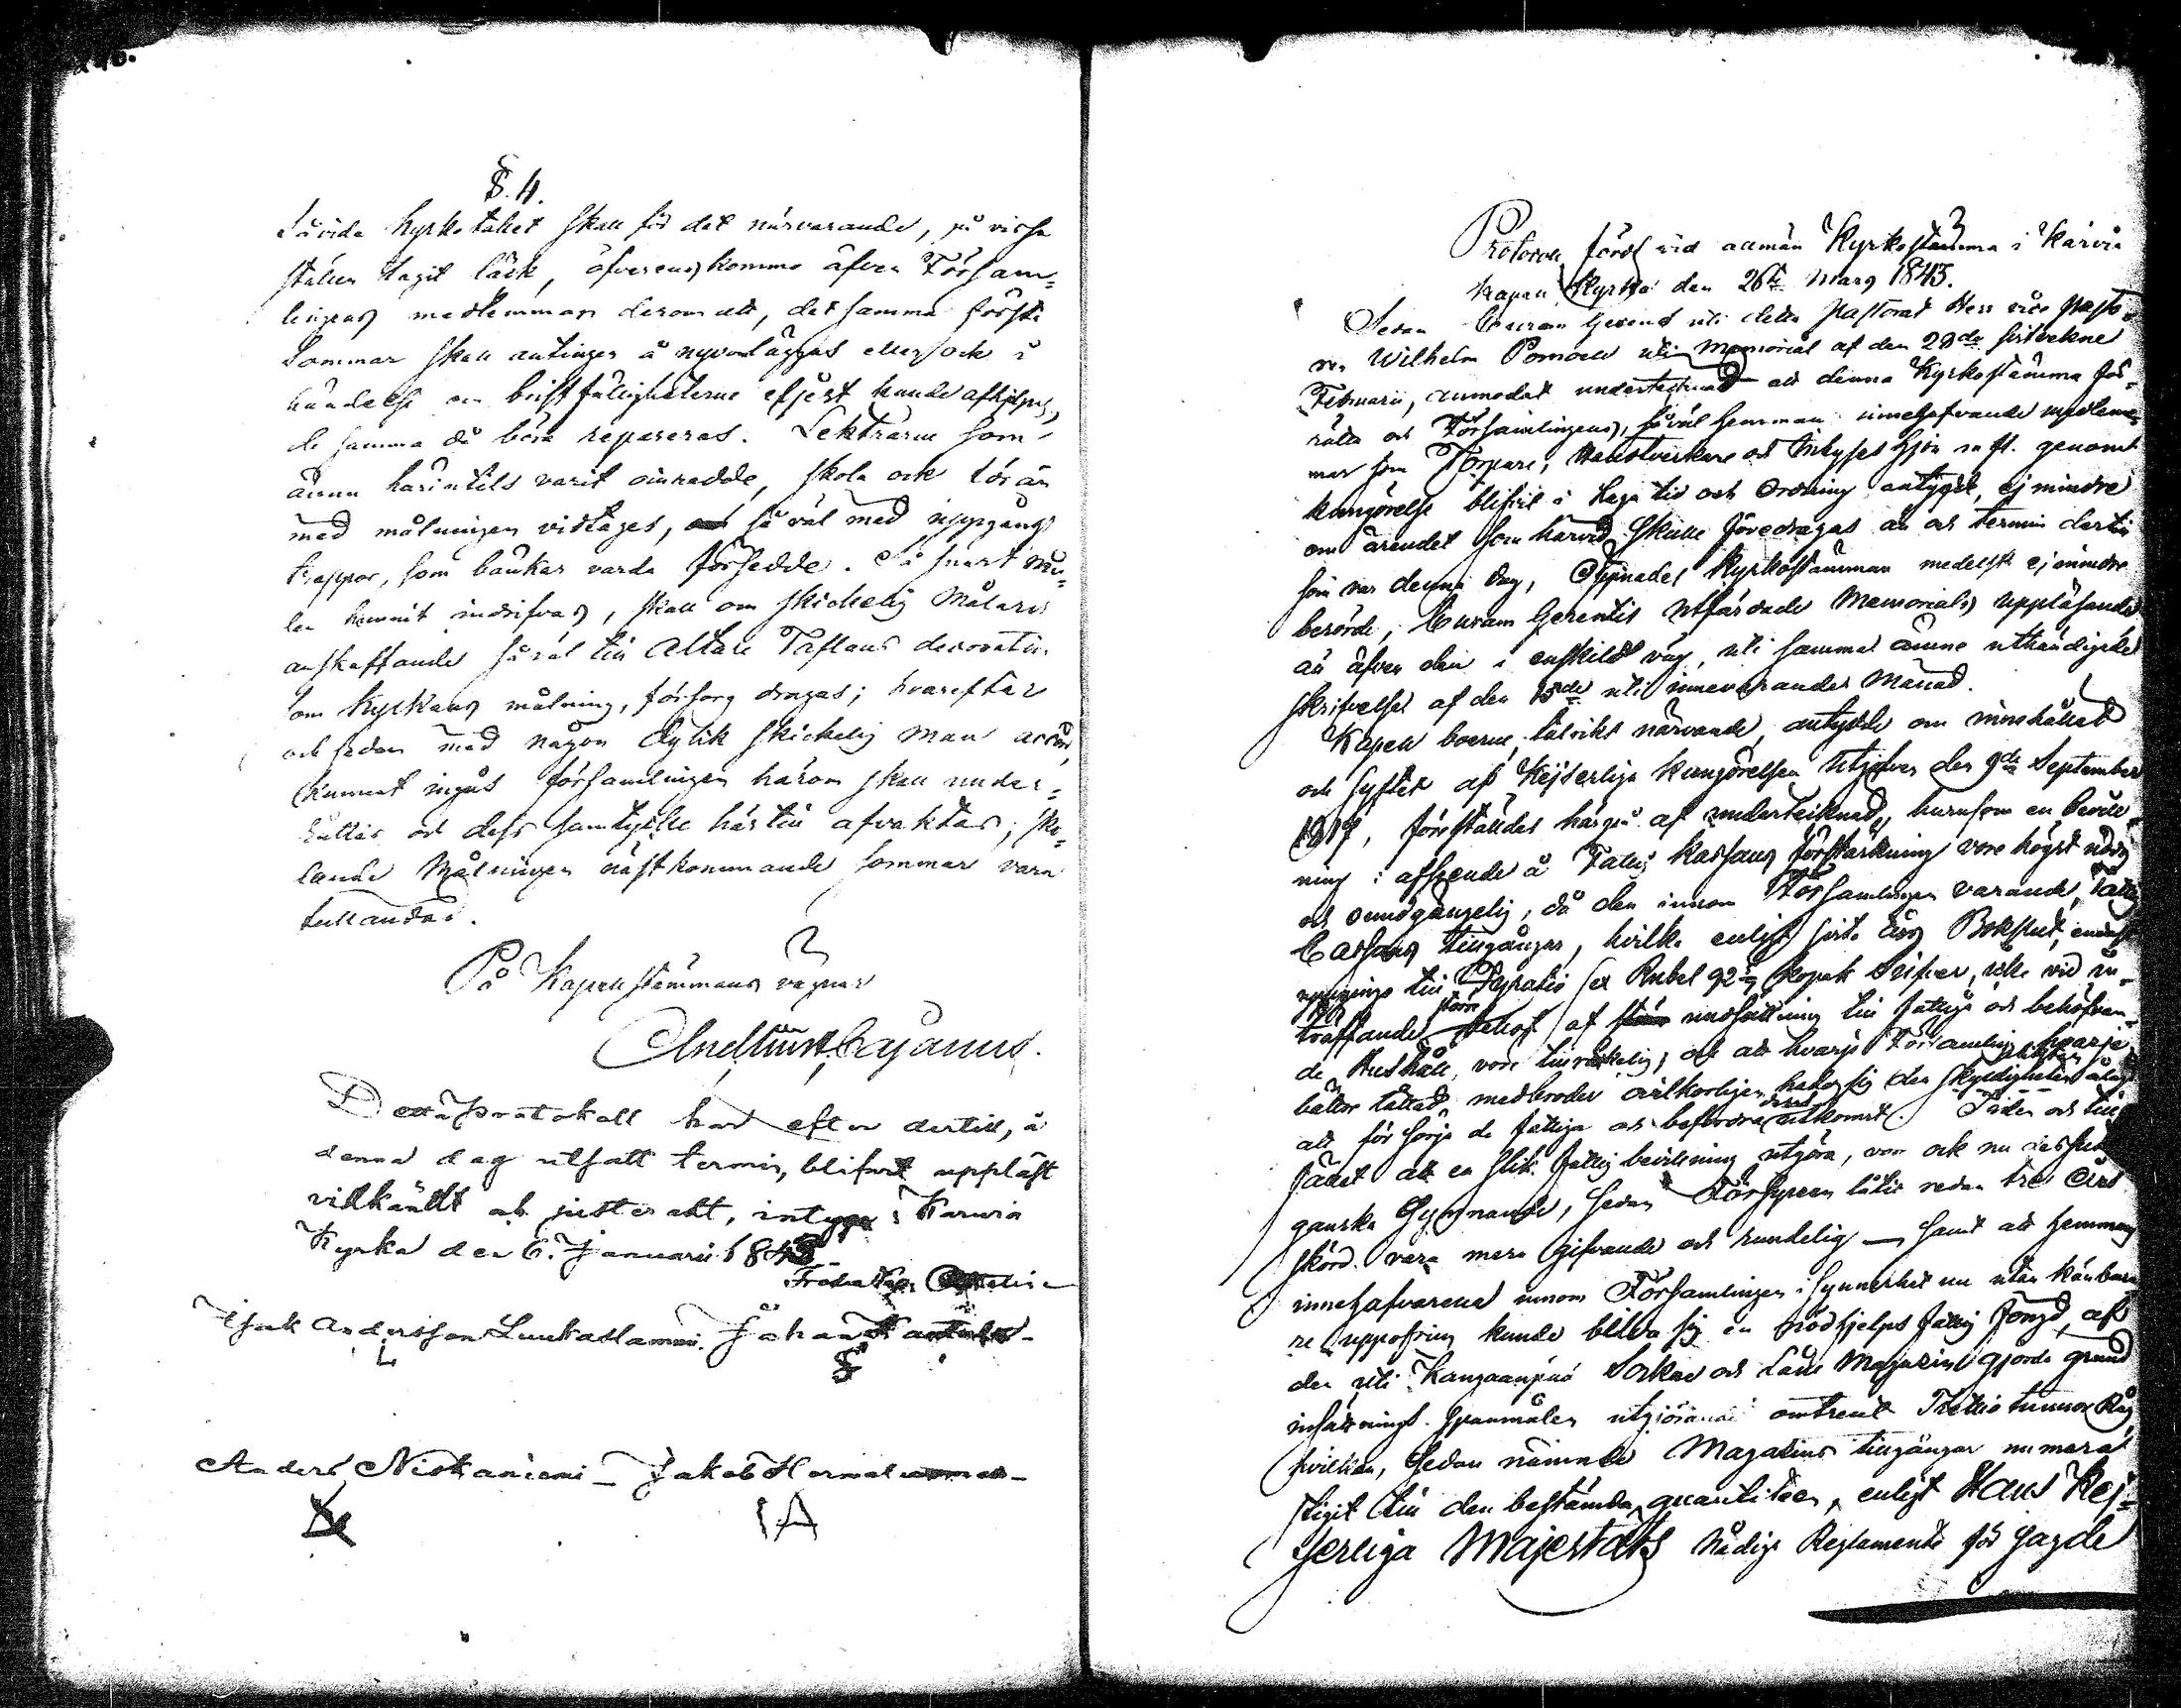 §. 4.
Såvida Kyrkotaket skall för det närvarande, på vissa
ställen tagit läck, öfverenskommo äfven Försam=
lingens medlemmar derom att, det samma första
Sommar skall antingen å nyo omläggas eller ock i
händelse om bristfäligheterne eljest kunde afhjelpas,
de samma då böra repareras. Lektrarne som
ännu härintils varit oinredde, skola ock
med målningen vidtages, så väl med uppgångs
trappor, som bänkar varda försedde. Så snart
len hunnit indrifvas, skall om skickelig Målares
anskaffande såväl till Altare Taflans decoration
om Kyrkans målning, försorg dragas; hvarefter
och sedan med någon dylik skickelig man accord
kunnat ingås församlingen härom skall under=
rättas och dess samtycke härtill afvaktas; sko=
lande Målningen nästkommande sommar vara
fulländad.
På Kapellstämmans vägnar
Cajanus.
Detta protokoll har efter dertill, å
denna dag utsatt termin, blifvit uppläst
vidkändt och justeradt, intyga i Karvia
Kyrka den 6. Januarii 1843
Isak Andersson Luukaslammi. Johan
Anders Niskaniemi _ Jakob
IA
Protocoll fördt vid allmän Kyrkostämma i Karvia
Kapell Kyrka den 26te Mars 1843.
Sedan Curam Gerens uti detta Pastorat Herr vice Pasto=
rn Wilhelm uti Memorial af den 28de sistvekne
Februarii, anmodat undertecknad att denna Kyrkostämma för=
rätta och Församlingens, såväl hemman innehafvande medlem=
mar som Torpare, Handtverkare och Inhyses hjon m fl. genom
kungörelse blifvit i laga tid och Ordning antydt, ej mindre
om ärendet som härvid skulle föredragas än och termin dertill
som var denna dag, Öppnades Kyrkostämman medelst ej mindre
berörde, Curam Gerentis utfärdade Memorials uppläsande
än äfven den i enskild väg, uti samma ämne uthändigade
skrifvelse af den 15de uti innevarande Månad.
Kapell boerne, talrikt närvarande, antydde om innehållet
och syftet af Kejserliga kungörelsen utgifven den 9de September
1817, föreställdes härpå af undertecknad, hurusom en bevill=
ning i afseende å Fattig kassans förstärkning vore högst nödig
och oundgängelig, då den innom Församlingen varande, fattig
Cassans tillgångar, hvilka enligt sista års Bokslut, endast
uppgingo till Rubel 92 Kopek Silfver, icke vid in=
träffande större behof af undsättning till fattiga och behöfvan=
de Hushåll, vore tillräckelig; och att hvarje Församling hvarje
bättre lottad medbroder ovilkorligen hade sig den skyldigheten ålagd
att försörja de fattiga och befordra deras utkomst. Tiden och till=
fället att en slik fattig bevillning utgöra, voro ock nu dessutom
ganska gynnande, sedan Försynen låtit redan tre Års
skörd vara mera gifvande och rundelig — samt att hemmans
innehafvarena innom Församlingen i synnerhet nu utan kännba=
re uppofring kunde bilda sig en nödhjelps fattig fond, af
den uti Kangaanpää Sockne och Låne Magazin gjorda grund
insättnings Spannmålen utgiörande omtrent Trettio tunnor Råg
hvilken, sedan nämnde Magazins tillgångar numera
stigit till den bestämda quantiteen, enligt Hans Kej=
serliga Majestäts Nådiga Reglamente för Sagde